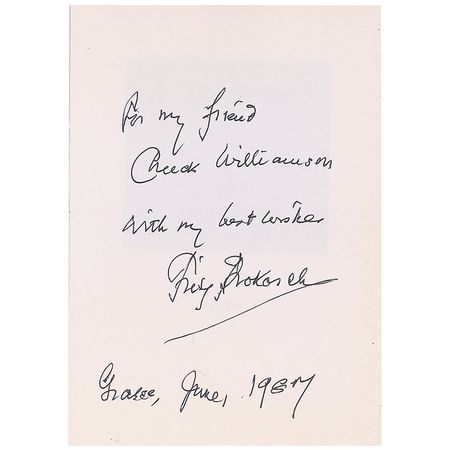 For my friend
Chuck Williamson
with my best wishes
Prokosch
Grasse, June, 1987